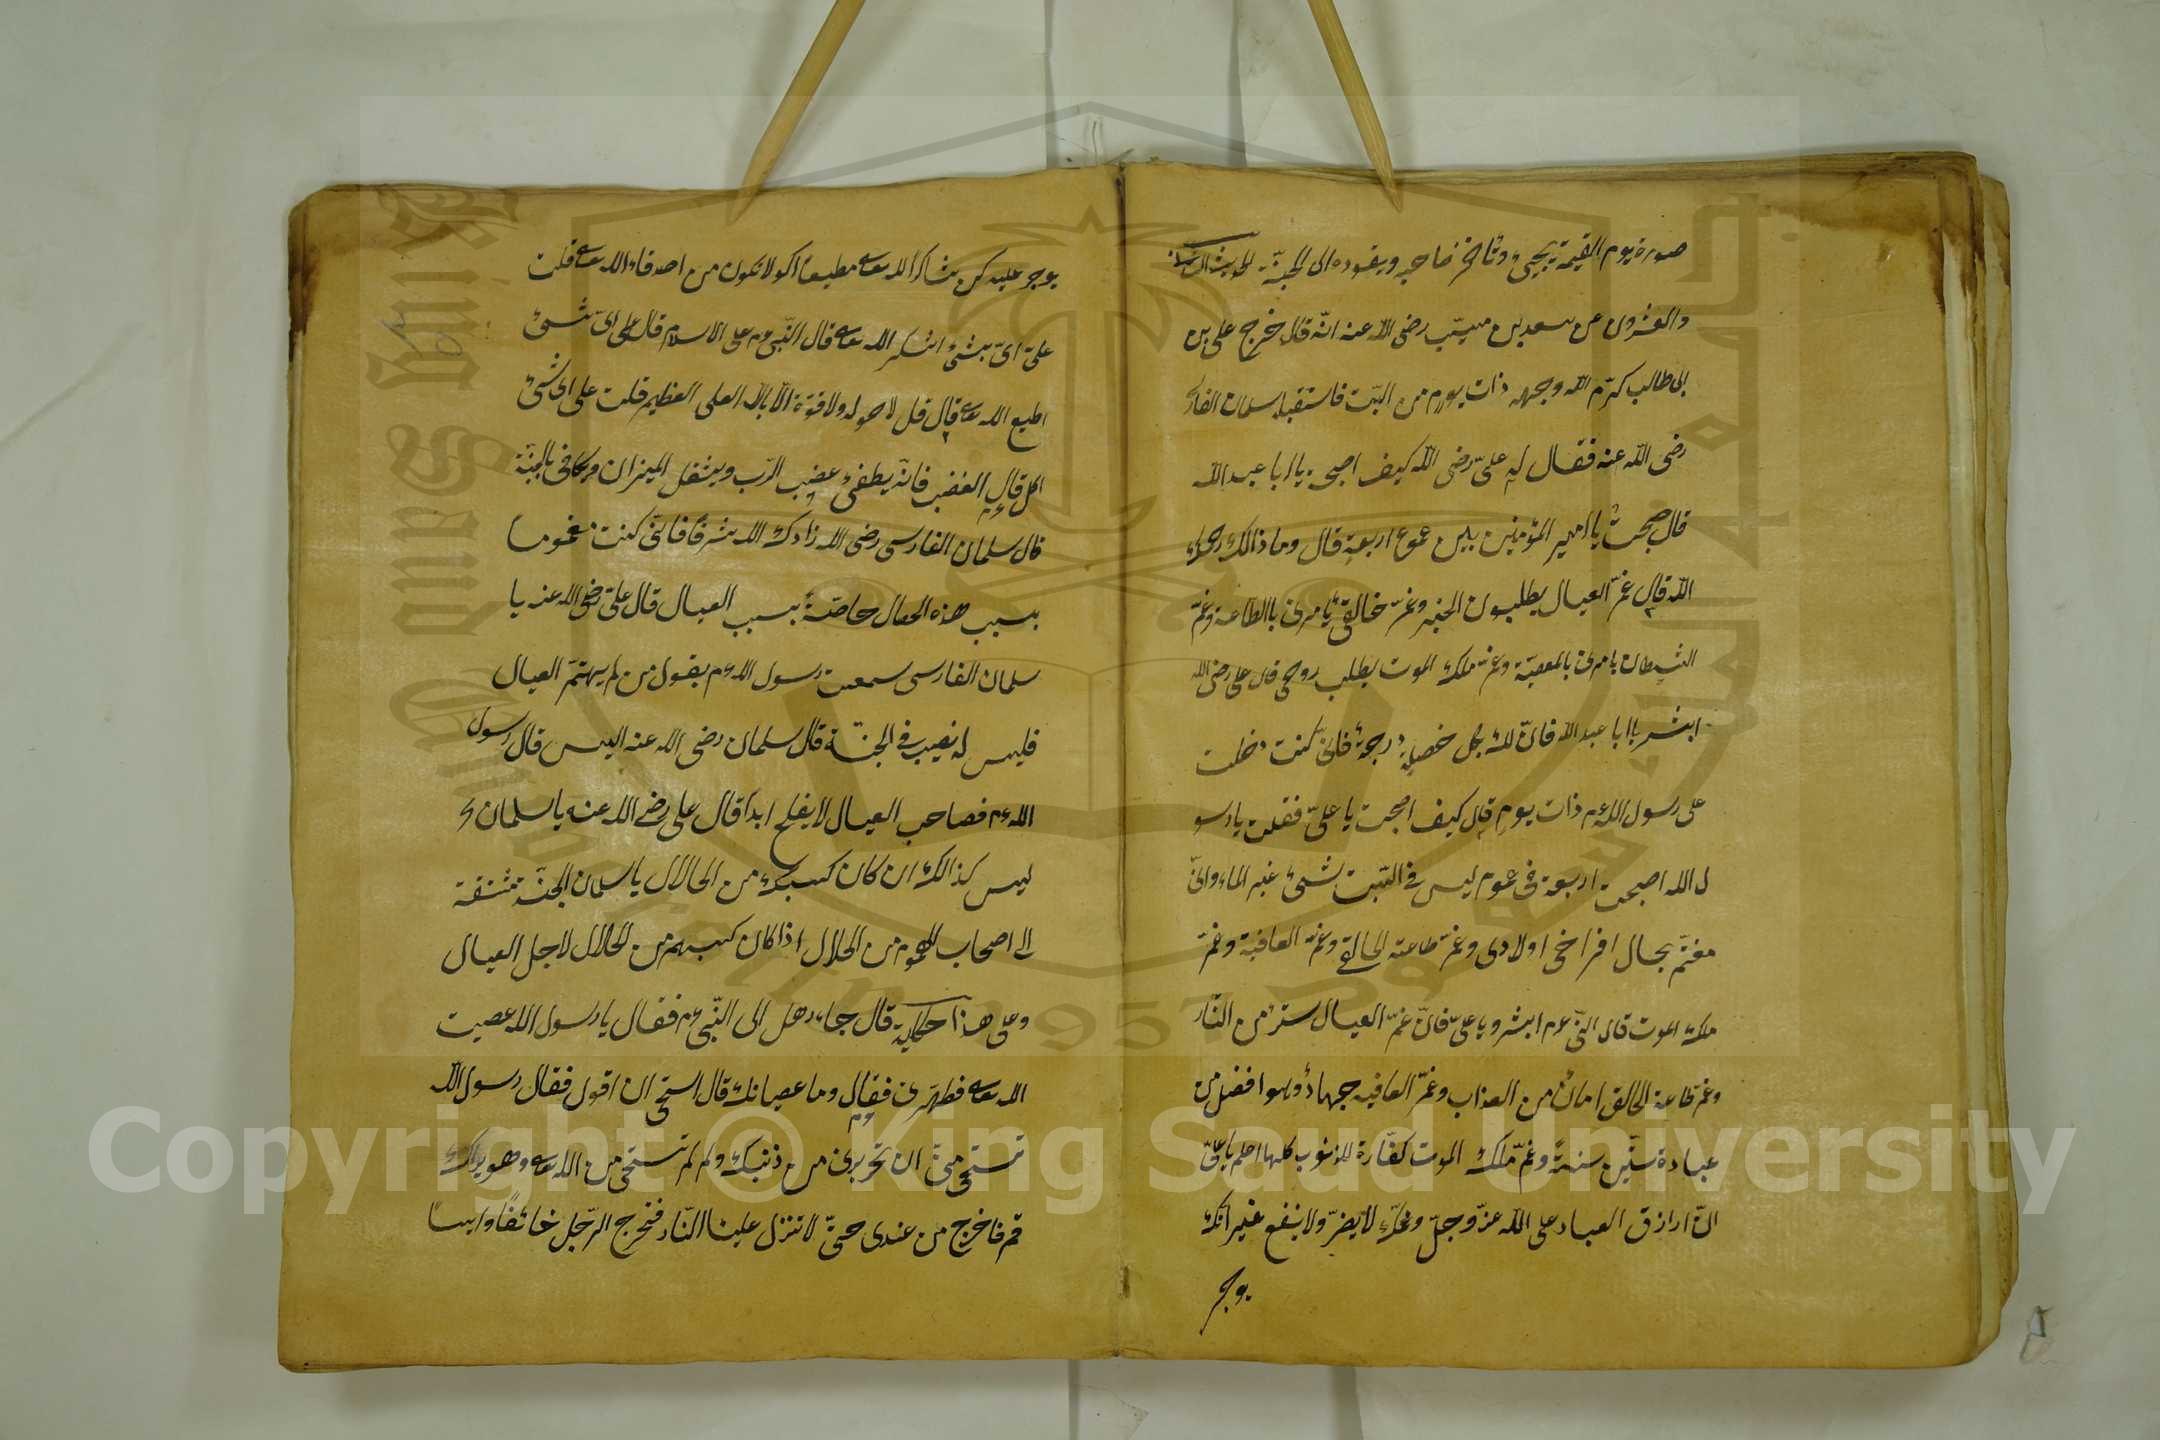 صورة يوم القيمة يجئ وتأخذ صاحبه ويقوده الى الجنة الحديث الثالث
والعشرون عن سعد بن مسيّب رضى الله عنه انّه قال خرج على بن
ابى طالب كرّم الله وجهه ذات يوم من البيت فاستقبله سلمان الفارسى
رضى الله عنه فقال له علىّ رضى الله كيف اصبحت يا ابا عبد الله
قال صبحت يا امير المؤمنين بين غموم اربعة قال وما ذالك رحمك
الله قال غمّ العيال يطلبون الخبز وغمّ خالق يأمرنى باالطاعة وغمّ
الشيطان يامرنى بالمعصيّة وغمّ ملك الموت يطلب روحى قال على رضى الله
ابشر يا ابا عبد الله فانّ لك بكل خصلة درجة فانّى كنت دخلت
على رسول الله عم ذات يوم قال كيف اصبحت يا علىّ فقلت يا رسو
ل الله اصبحت اربعة فى غموم ليس فى البيت شئ غير الماء وانّى
مغتمّ بحال افراخى اولادى وغمّ طاعة الخالق وغمّ العاقبة وغمّ
ملك الموت قال النّبى عم ابشر يا علىّ فانّ غمّ العيال ستر من النّار
وغمّ طاعة الخالق امان من العذاب وغمّ العاقبة جهاد وهو افضل من
عبادة ستّين سنة وغمّ ملك الموت كفّارة للذنوب كلها اعلم يا علىّ
انّ ارازق العباد على الله عزّ وجلّ وغمّك لا يضرّ ولا ينفع غير انّك
يوجر
يوجر عليه كن شاكراً لله تعا مطيعاً اكولا تكون من اصدقاء الله تعا قلت
على اىّ شئ اشكر الله تعا قال النّبى عم على الاسلام قال على اىّ شئ
اطيع الله تعا قال قل لا حول ولا قوّة الّا بالله العلى العظيم قلت على اى شئ
اكل قال الغضب فانّه يطفئ غضب الرّب ويثقل الميزان ويكافى بالجنّة
قال سلمان الفارسى رضى الله زادك الله شرفًا فانّى كنت مغموما
بسبب هذه الحال خاصّةً بسبب العيال قال علىّ رضى الله عنه يا
سلمان الفارسى سمعت رسول الله عم يقول من لم يهتمّ العيال
فليس له نصيب فى الجنّة قال سلمان رضى الله عنه اليس قال رسول
الله عم فصاحب العيال لا يفلح ابدا قال على رضى الله عنه يا سلمان
ليس كذالك ان كان كسبك من الحلال يا سلمان الجنّة مشتقة
الى اصحاب الهموم من الحلال اذا كان كسبهم من الحلال لاجل العيال
وعلى هذا حكاية قال جاء رجل الى النّبى عم فقال يا رسول الله عصيت
الله تعا فطهّرنى فقال وما عصيانك قال استحى ان اقول فقال رسول الله
تستحى منّى ان تخبرنى من ذنبك ولم لم تستحى من الله تعا وهو يراك
قم فاخرج من عندى حتىّ لا تنزل علينا النّار فخرج الرّجل خائفًا وايسًا